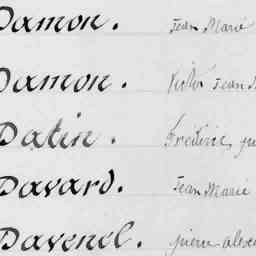 Damon. Jean Marie
Damon. Victor Jean
Datin. Frédéric
Davard. Jean Marie
Davenel. pierre